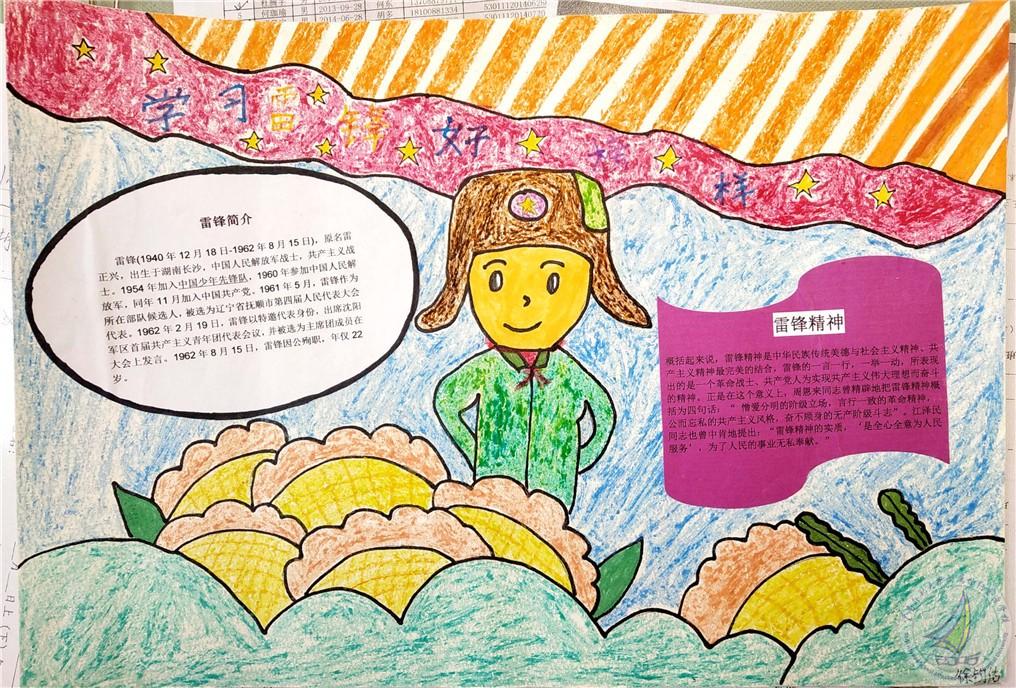 男 2013-09-28
男 2014-06-28
18100881334
学习雷锋好榜样
雷锋简介
雷锋(1940 年 12 月 18 日-1962 年 8 月 15 日)，原名雷
正兴，出生于湖南长沙，中国人民解放军战士，共产主义战
士。1954 年加入中国少年先锋队，1960 年参加中国人民解
放军，同年 11 月加入中国共产党。1961 年 5 月，雷锋作为
所在部队候选人，被选为辽宁省抚顺市第四届人民代表大会
代表。1962 年 2 月 19 日，雷锋以特邀代表身份，出席沈阳
军区首届共产主义青年团代表会议，并被选为主席团成员在
大会上发言。1962 年 8 月 15 日，雷锋因公殉职，年仅 22
岁。
雷锋精神
概括起来说，雷锋精神是中华民族传统美德与社会主义精神、共
产主义精神最完美的结合，雷锋的一言一行，一举一动，所表现
出的是一个革命战士、共产党人为实现共产主义伟大理想而奋斗
的精神。正是在这个意义上，周恩来同志曾精辟地把雷锋精神概
括为四句话：“ 憎爱分明的阶级立场，言行一致的革命精神，
公而忘私的共产主义风格，奋不顾身的无产阶级斗志”。江泽民
同志也曾中肯地提出：“雷锋精神的实质，‘是全心全意为人民
服务’，为了人民的事业无私奉献。”